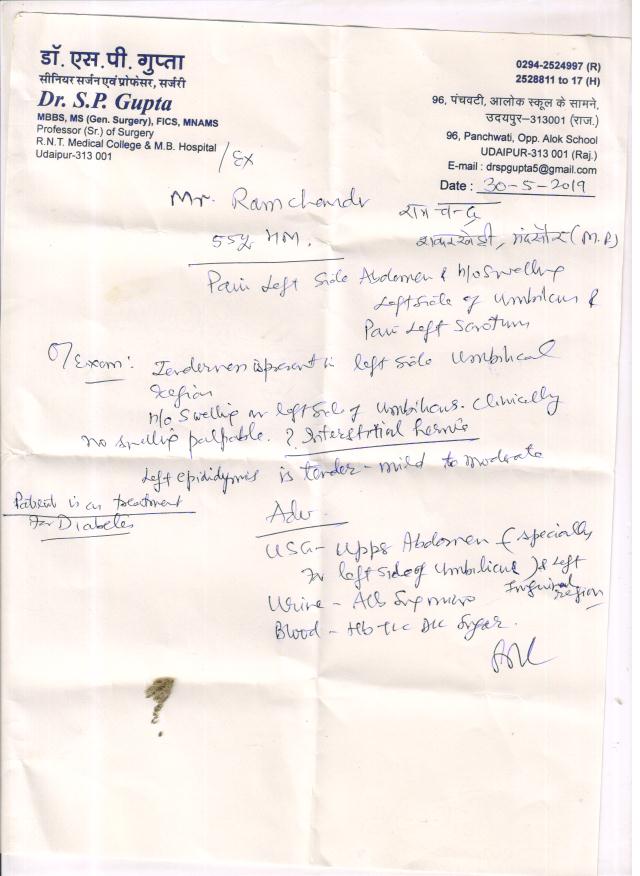 डॉ. एस.पी. गुप्ता
सीनियर सर्जन एवं प्रोफेसर, सर्जरी
Dr. S.P. Gupta
MBBS, MS (Gen. Surgery), FICS, MNAMS
Professor (Sr.) of Surgery
R.N.T. Medical College & M.B. Hospital
Udaipur-313 001
0294-2524997 (R)
2528811 to 17 (H)
96, पंचवटी, आलोक स्कूल के सामने,
उदयपुर–313001 (राज.)
96, Panchwati, Opp. Alok School
UDAIPUR-313 001 (Raj.)
E-mail : drspgupta5@gmail.com
Date : 30-5-2019
/Ex
Mr. Ramchandr
रामचन्द्र
55y
मंदसौर (M.P)
Pain Left Side Abdomen & h/o Swelling
Left Side of Umbilicus &
Pain Left Scrotum
O/Exam: Tenderness is present in left side Umbilical
region
h/o Swelling in left side of Umbilicus. Clinically
no swelling palpable. ? Interstitial hernia
Left epididymis is tender - mild to moderate
Patient is on treatment
for Diabetes
Adv.
USG - Upper Abdomen (specially
in left side of Umbilicus) & Left
Inguinal region
Urine - Alb Sug micro
Blood - Hb TLC DLC Sugar.